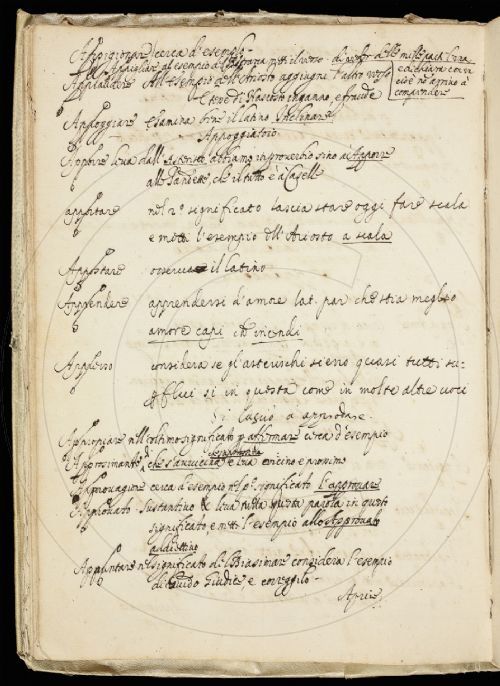 Appigionare cerca d'esempio
Appigliare all'esempio del Petrarca metti l'uno
Appallare All'esempio dell'Ariosto aggiugni l'altro verso
e dichiara come
cioè no aprino à
comprendere
e frode
Appoggiare Esamina bene il latino Inclinare
Appoggiatoio
Apporre leva dall'Asterisco abbiamo in proverbio sino al Apporre
alle Pandette, che il tutto è à Caselle
appostare nel 2º significato lascia stare oggi fare scala
e metti l'esempio dell'Ariosto a scala
Appostare osserva il latino
Apprendere apprendersi d'amore lat. par che stia meglio
amore capi et incendi
Appresso considera se gli asterischi sieno quasi tutti su-
perflui sì in questa come in molte altre voci
Approdare
Appropiare nell'ultimo significato p affirmare cerca d'esempio
Approssimante che s'avvicina e leva vicino e prossimo
Approvagione cerca d'esempio nel pº significato l'approvare
Approvato Sustantivo leva tutta questa parola in questo
significato, e metti l'esempio allo Approvato
addiettivo
Appuntare nel significato di Biasimare considera l'esempio
di Guido Giudice, e correggilo.
Aprire